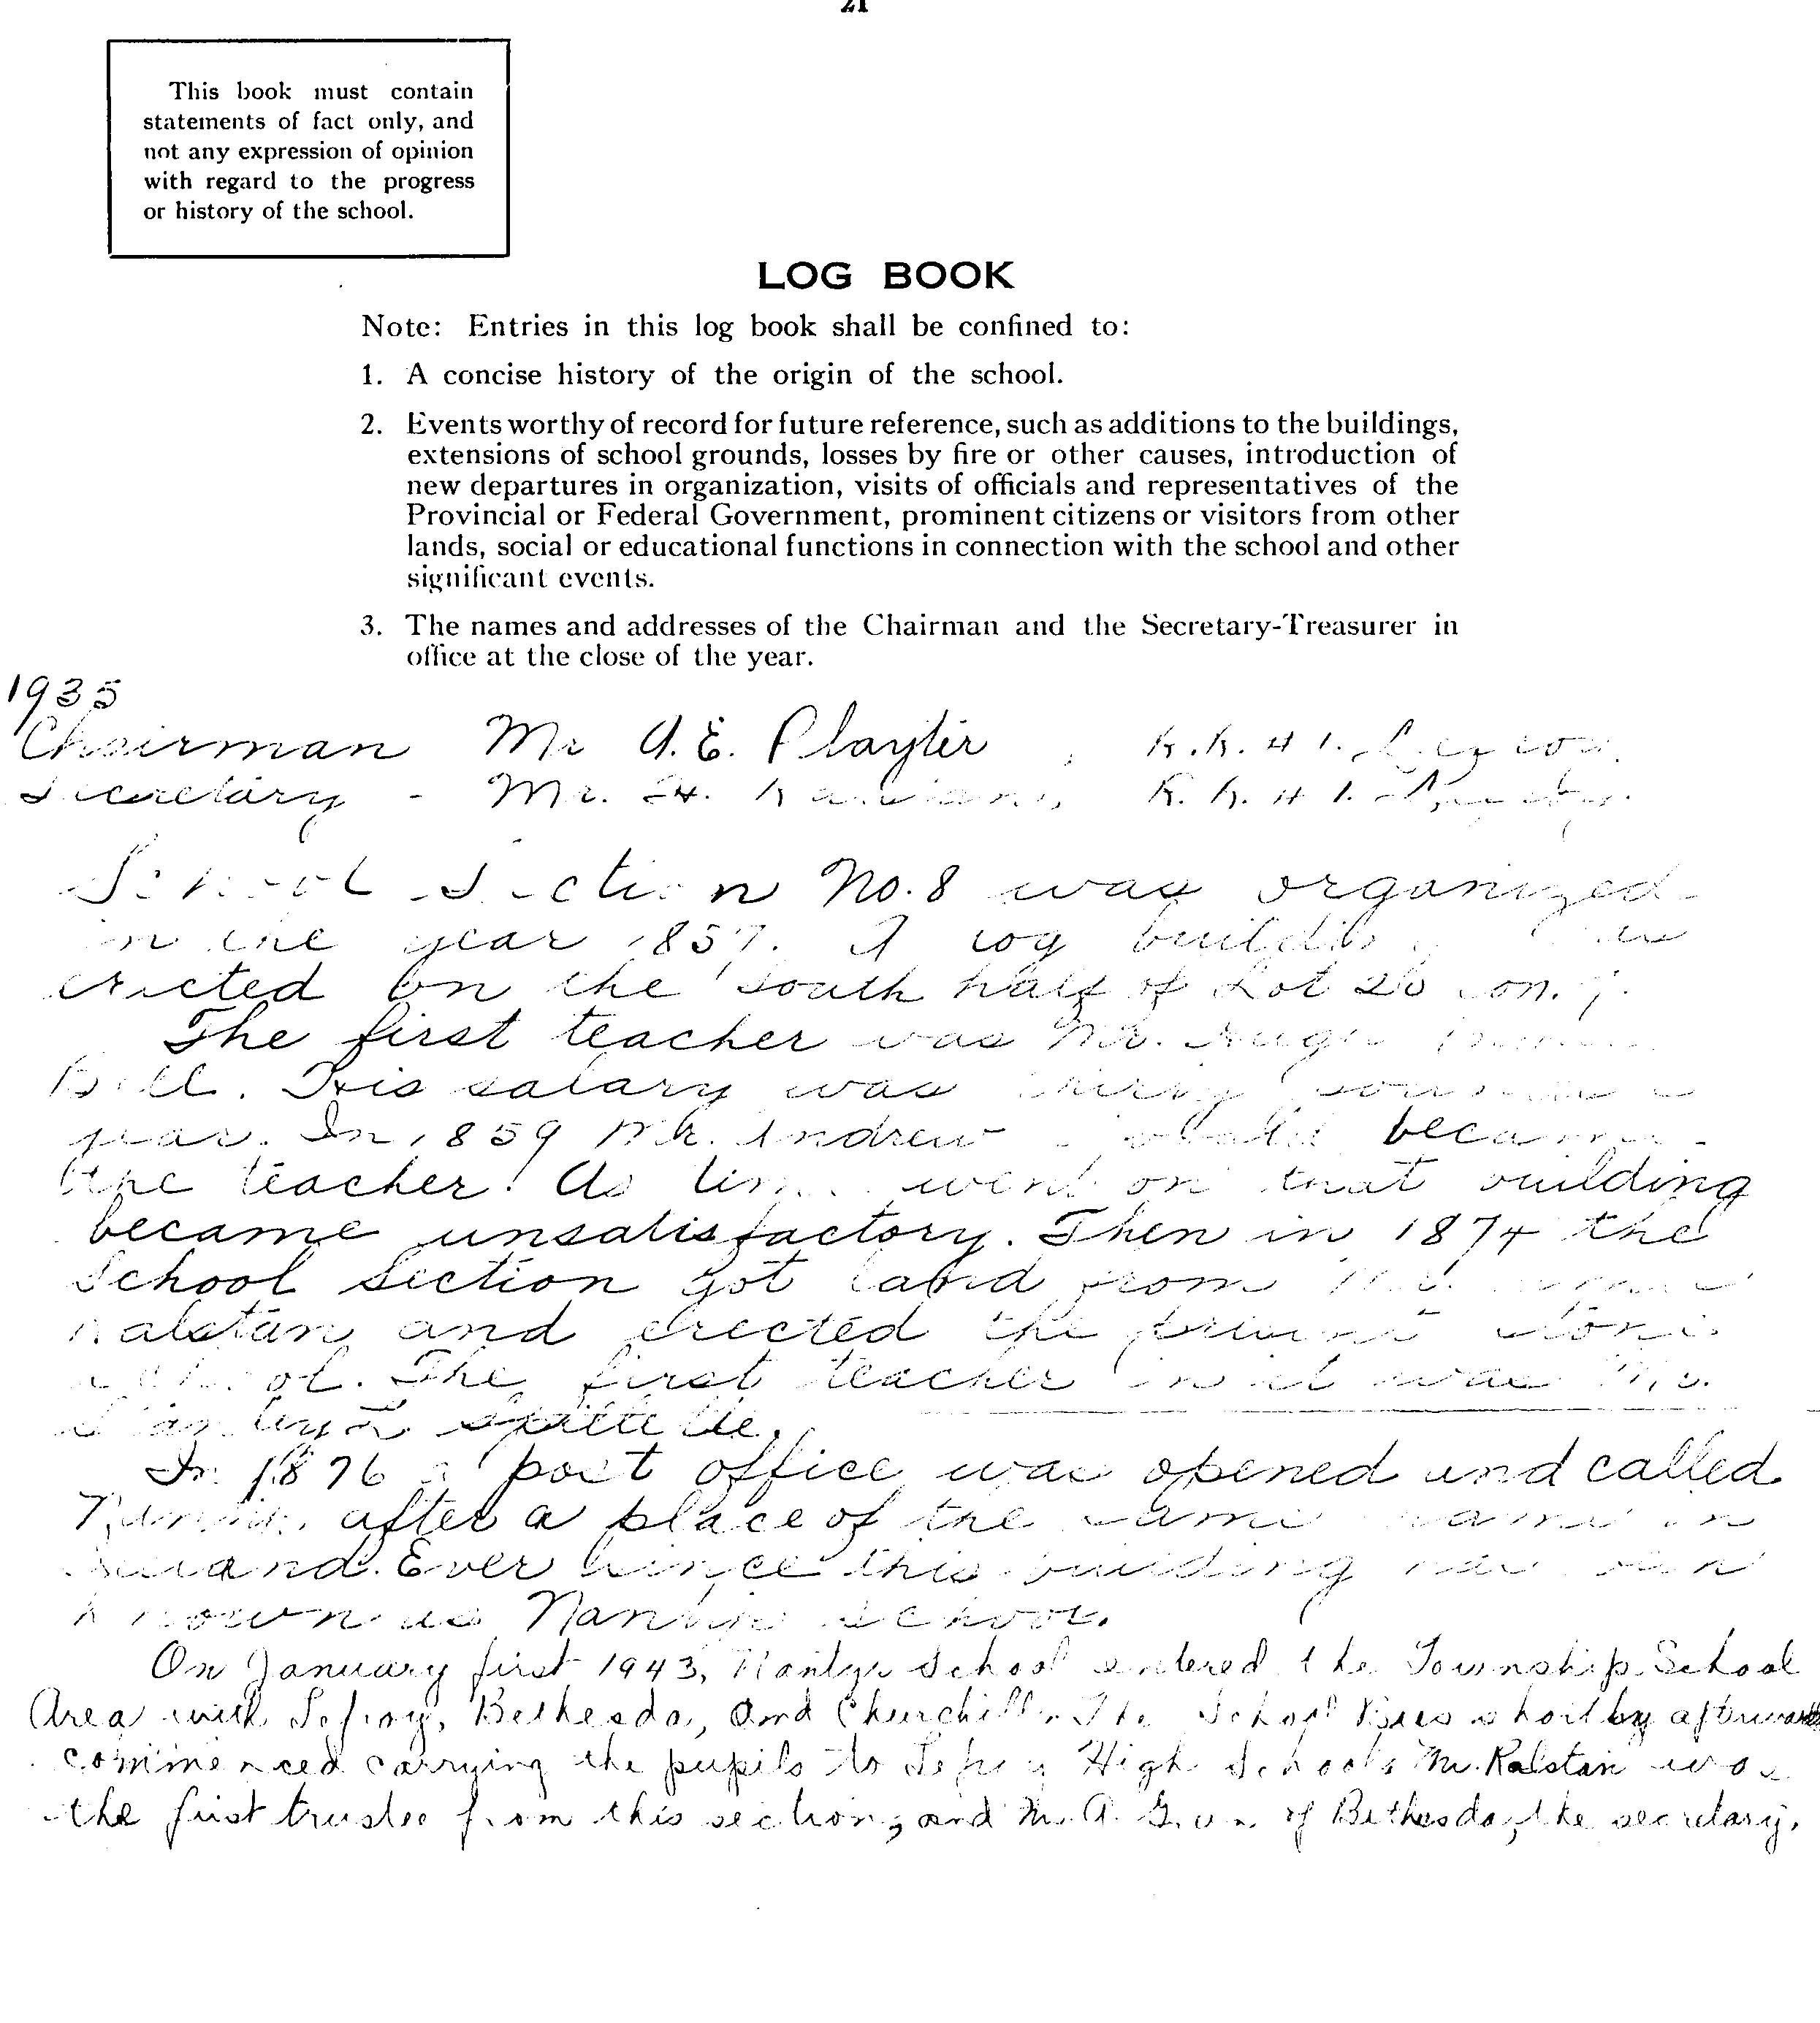 21
This book must contain
statements of fact only, and
not any expression of opinion
with regard to the progress
or history of the school.
LOG BOOK
Note: Entries in this log book shall be confined to:
1. A concise history of the origin of the school.
2. Events worthy of record for future reference, such as additions to the buildings,
extensions of school grounds, losses by fire or other causes, introduction of
new departures in organization, visits of officials and representatives of the
Provincial or Federal Government, prominent citizens or visitors from other
lands, social or educational functions in connection with the school and other
significant events.
3. The names and addresses of the Chairman and the Secretary-Treasurer in
office at the close of the year.
1935
Chairman Mr A. E. Playter, R.R. # 1.
Secretary - Mr. H. R.R. # 1.
School Section No. 8 was organized
in the year 1857. A log building was
erected on the south half of Lot 20 con.
The first teacher was Mr. Hugh
Bell. His salary was a
year. In 1859 Mr. Andrew became
the teacher. As time went on that building
became unsatisfactory. Then in 1874 the
School Section got land from
Ralstan and erected the present stone
school. The first teacher in it was Mr.
In 1876 a post office was opened and called
Nantyr, after a place of the same name in
Ever since this building has been
known as Nantyr School.
On January first 1943, Nantyr School entered the Township School
Area with Lefroy, Bethesda, and Churchill. The School Bus shortly afterwards
commenced carrying the pupils to Lefroy High School. Mr. Ralstan was
the first trustee from this section, and Mr. A. of Bethesda, the secretary.